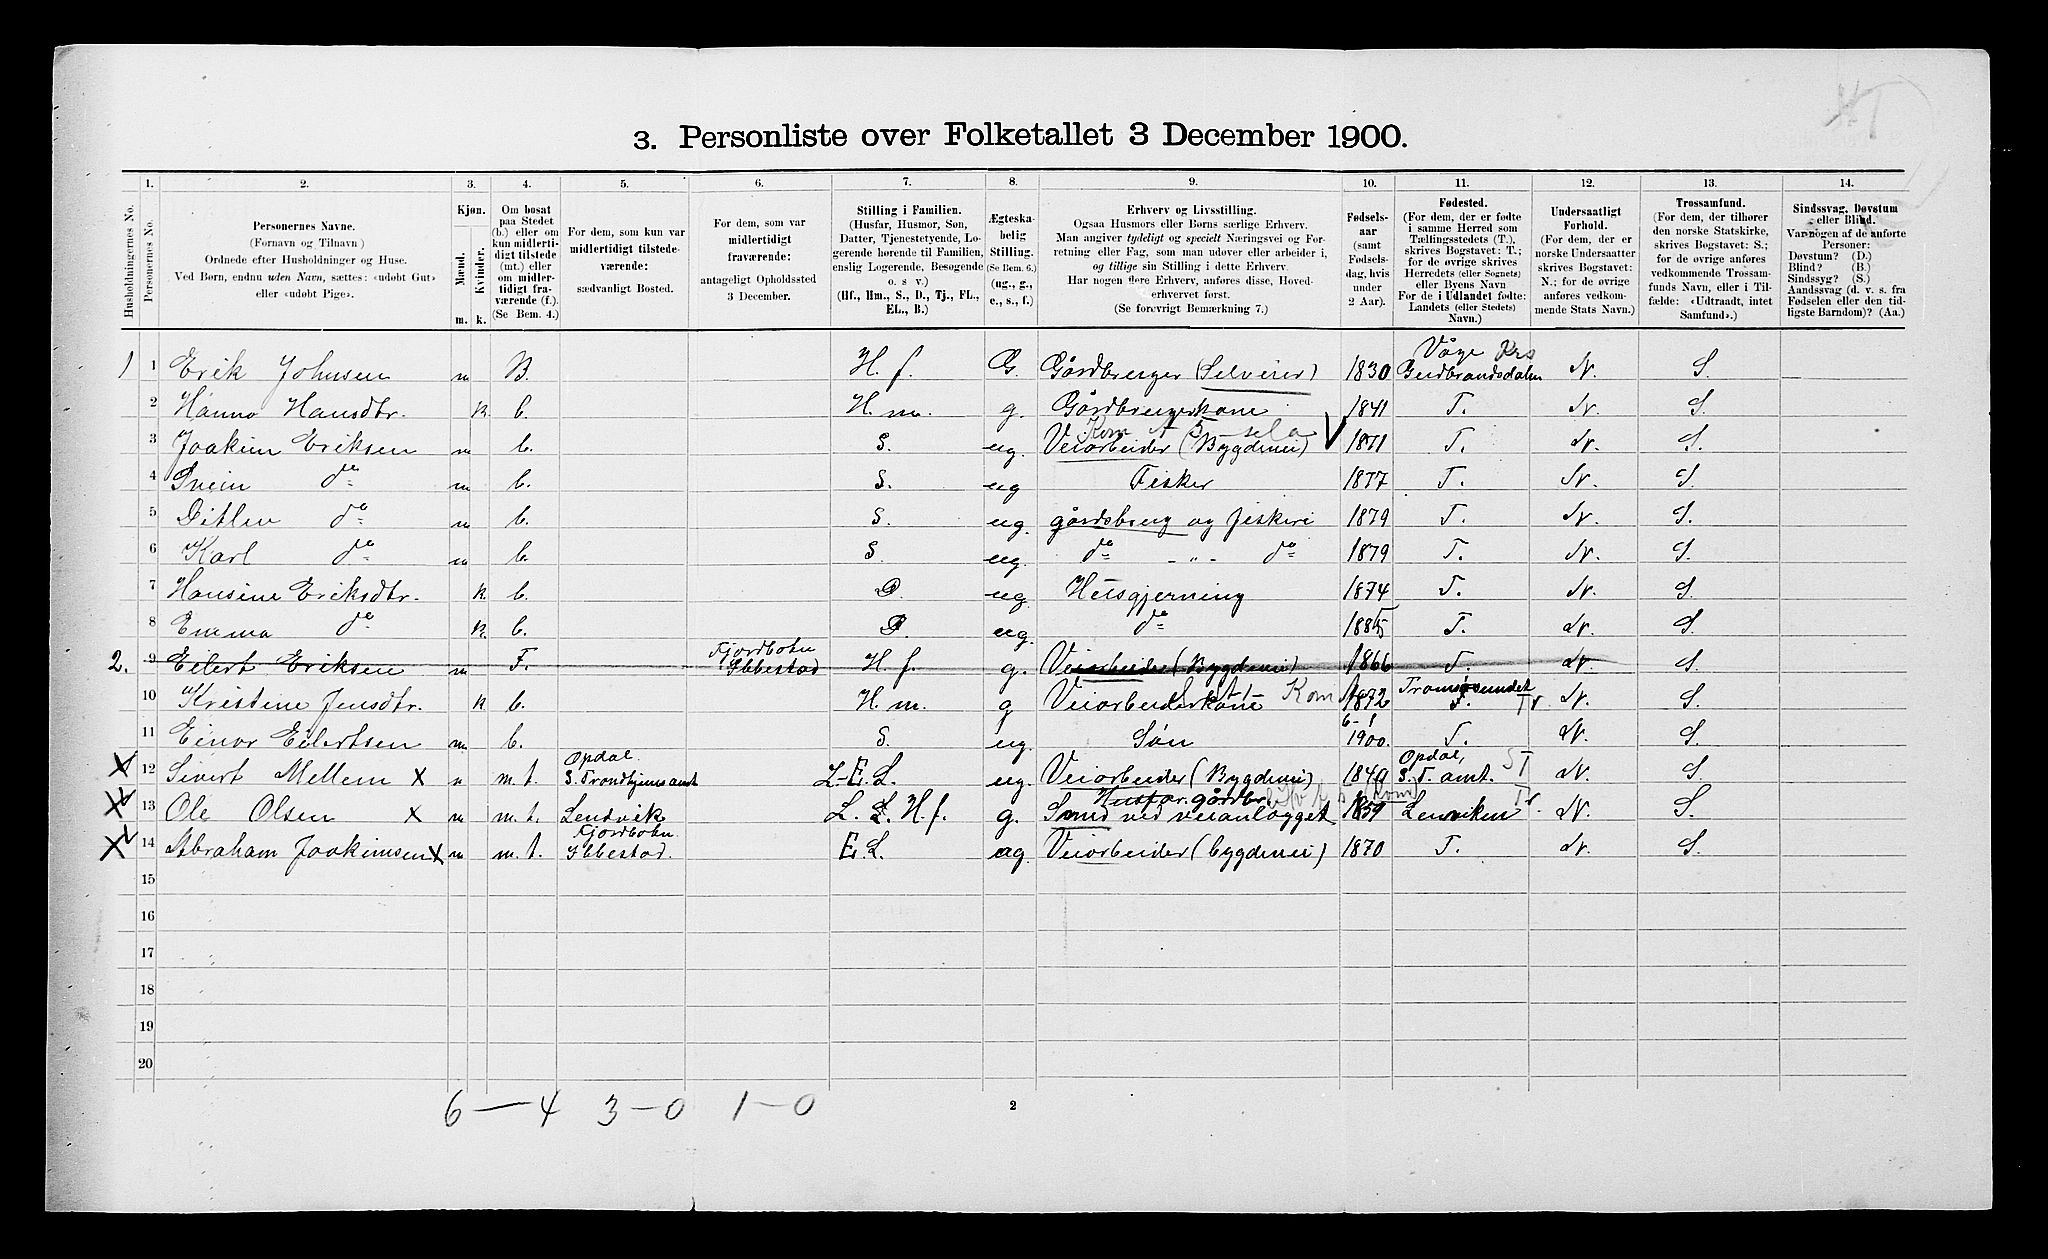 3. Personliste over Folketallet 3 December 1900.
Husholdningernes No.
1.
Personernes No.
2.
Personernes Navne.
(Fornavn og Tilnavn)
Ordnede efter Husholdninger og Huse.
Ved Børn, endnu uden Navn, sættes: «udøbt Gut»
eller «udøbt Pige».
3.
Kjøn.
Mænd.
Kvinder.
m. k.
4.
Om bosat
paa Stedet
(b.) eller om
kun midlerti-
digt tilstede
(mt.) eller
om midler-
tidigt fra-
værende (f.).
(Se Bem. 4.)
5.
For dem, som kun var
midlertidigt tilstede-
værende:
sædvanligt Bosted.
6.
For dem, som var
midlertidigt
fraværende:
antageligt Opholdssted
3 December.
7.
Stilling i Familien.
(Husfar, Husmor, Søn,
Datter, Tjenestetyende, Lo-
gerende hørende til Familien,
enslig Logerende, Besøgende
o. s v.)
(Hf., Hm., S., D., Tj., FL.,
EL., B.)
8.
Ægteska-
belig
Stilling.
(Se Bem. 6.)
(ug., g.,
e., s., f.)
9.
Erhverv og Livsstilling.
Ogsaa Husmors eller Børns særlige Erhverv.
Man angiver tydeligt og specielt Næringsvei og For-
retning eller Fag, som man udøver eller arbeider i,
og tillige sin Stilling i dette Erhverv.
Har nogen flere Erhverv, anføres disse, Hoved-
erhvervet først.
(Se forøvrigt Bemærkning 7.)
10.
Fødsels-
aar
(samt
Fødsels-
dag, hvis
under
2 Aar).
11.
Fødested.
(For dem, der er fødte
i samme Herred som
Tællingsstedets (T.),
skrives Bogstavet: T.;
for de øvrige skrives
Herredets (eller Sognets)
eller Byens Navn
For de i Udlandet fødte:
Landets (eller Stedets)
Navn.)
12.
Undersaatligt
Forhold.
(For dem, der er
norske Undersaatter
skrives Bogstavet:
N.; for de øvrige
anføres vedkom-
mende Stats Navn.)
13.
Trossamfund.
(For dem, der tilhører
den norske Statskirke,
skrives Bogstavet: S.;
for de øvrige anføres
vedkommende Trossam-
funds Navn, eller i Til-
fælde: «Udtraadt, intet
Samfund».)
14.
Sindssvag, Døvstum
eller Blind.
Var nogen af de anførte
Personer:
Døvstum? (D.)
Blind? (B.)
Sindssyg? (S.)
Aandssvag (d. v. s. fra
Fødselen eller den tid-
ligste Barndom)? (Aa.)
1 1 Erik Johnsen m B. H. f. G. Gårdbruger (Selveier) 1830 Våge Gudbrandsdalen N. S.
2 Hanna Hansdtr. k. b. H. m. g. Gårdbrugerkone 1841 T. N. S.
3 Joakim Eriksen m b. S. ug. Veiarbeider (Bygdevei) 1871 T. N. S.
4 Svein do m b. S. ug Fisker 1877 T. N. S.
5 Ditlev do m b. S. ug. gårdsbrug og fiskeri 1879 T. N. S.
6 Karl do m b. S. ug. do -"- do 1879 T. N. S.
7 Hansine Eriksdtr. k. b. D. ug. Husgjerning 1874 T. N. S.
8 Emma do k. b. D. ug. do 1885 T. N. S.
2. 9 Eilert Eriksen m F. Fjordbotn Ibbestad H. f. g. Veiarbeider (Bygdevei) 1866 T. N. S.
10 Kristine Jensdtr. k b. H. m. g Veiarbeiderkone Kom 1872 Tromsøsundet Tr N. S.
11 Einar Eilertsen m. b. S. ug. Søn 6-1 1900. T. N. S.
X 12 Sivert Mellem X m m. t. Opdal. S. Trondhjems amt L-E. L. ug. Veiarbeider (Bygdevei) 1840 Opdal, S. T. amt. ST N. S.
X 13 Ole Olsen X m m. t. Lendvik L. L. H. f. g. Husfar. gårdbr. Smed ved veianlægget 1859 Lenviken Tr. N. S.
X 14 Abraham Joakimsen X m m. t. Fjordbotn Ibbestad. E. L. ug. Veiarbeider (bygdevei) 1870 T. N. S.
15
16
17
18
19
20
6 — 4 3 — 0 1 — 0
2